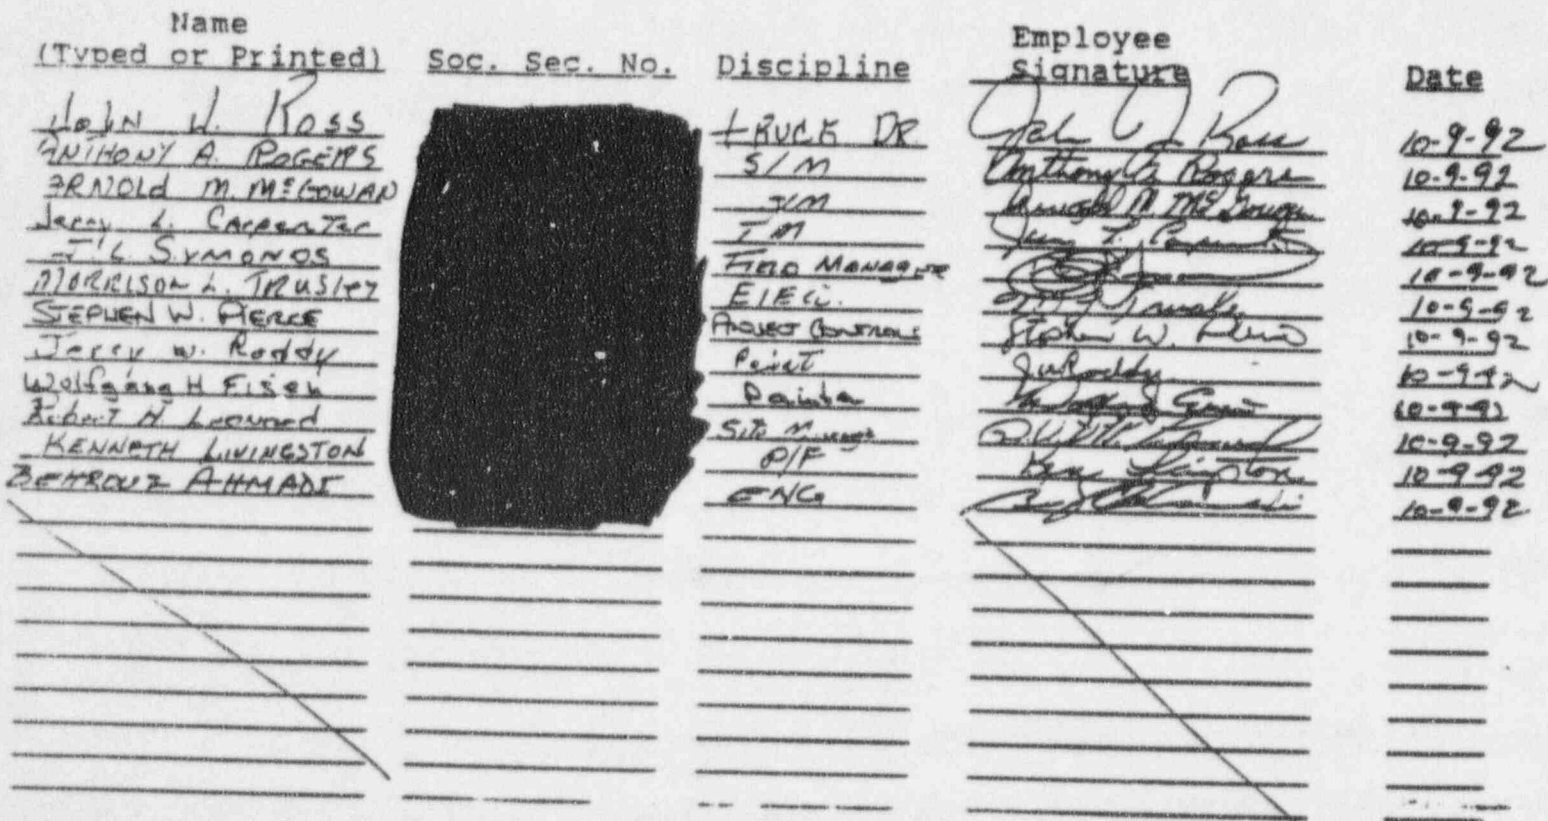 Name
(Typed or Printed) Soc. Sec. No. Discipline Employee Signature Date
John J. Ross TRUCK DR. John J Ross 10-9-92
ANTHONY A. ROGERS S/M Anthony A. Rogers 10-9-92
ARNOLD M. McGOWAN Arnold M. McGowan 10-9-92
Jerry L. Carpenter Jerry L. Carpenter 10-9-92
J. L. SYMONDS FIELD MANAGER 10-9-92
MORRISON L. TRUSLEY ELEC. 10-9-92
STEPHEN W. PIERCE PROJECT CONTROLS Stephen W. Pierce 10-9-92
Jerry W. Roddy Paint JWRoddy 10-9-92
Wolfgang H Painter 10-9-92
Robert H Leonard Site Manager 10-9-92
KENNETH LIVINGSTON P/F Ken Livingston 10-9-92
BEHROUZ AHMADI ENG 10-9-92